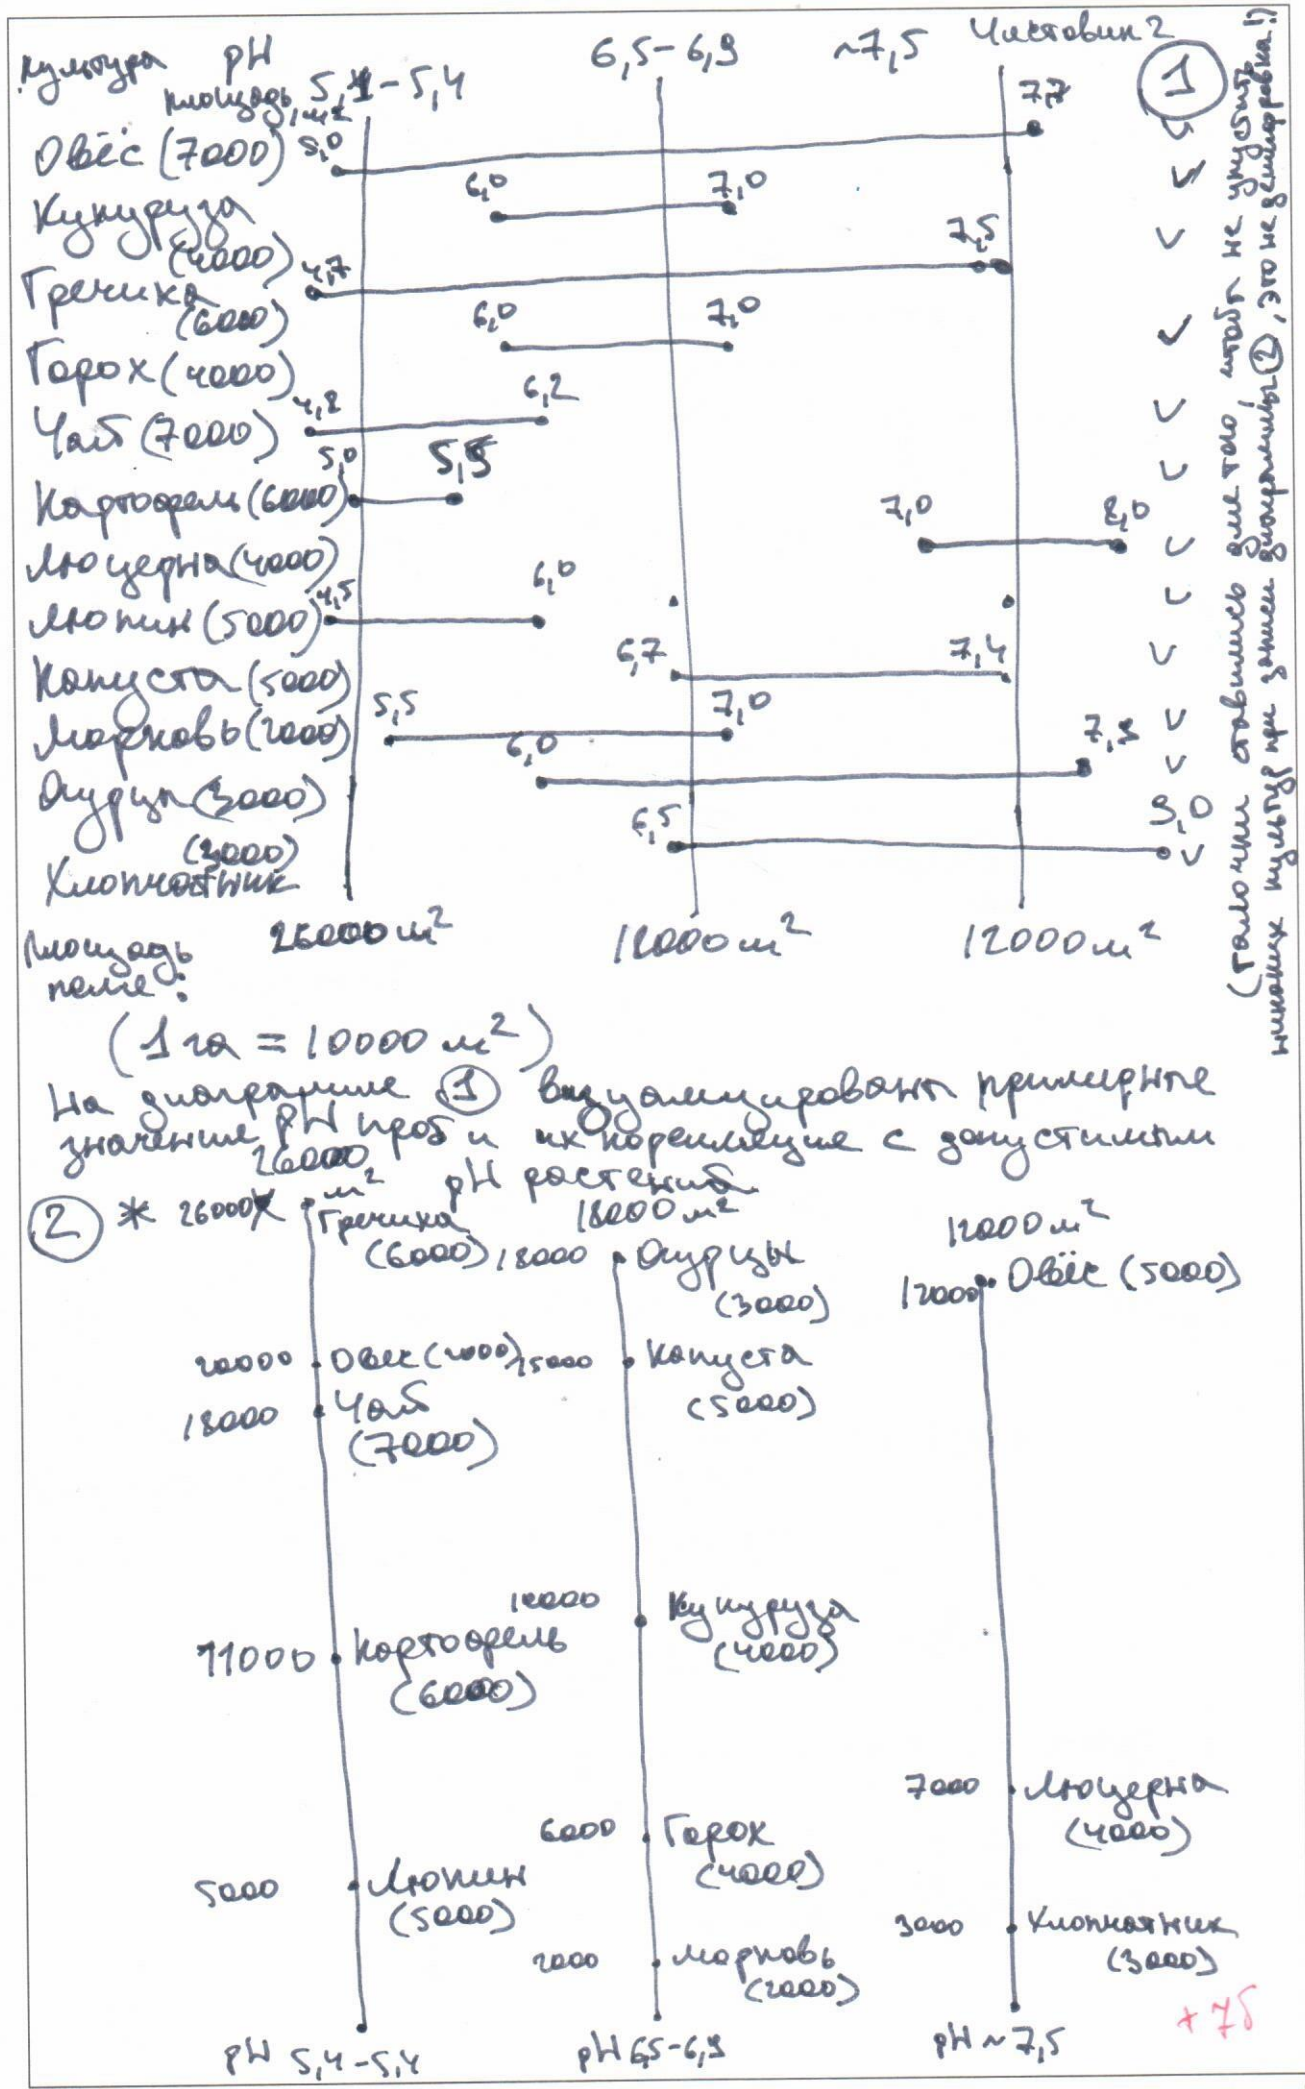 Чистовик 2
Культура pH 5,1-5,4 6,5-6,9 ~7,5
площадь, м²
1
Овёс (7000) 5,0 7,7
Кукуруза (4000) 6,0 7,0
Гречиха (6000) 4,7 7,5
Горох (4000) 6,0 7,0
Чай (7000) 4,8 6,2
Картофель (6000) 5,0 5,5
Люцерна (4000) 7,0 8,0
Люпин (5000) 4,5 6,0
Капуста (5000) 6,7 7,4
Морковь (2000) 5,5 7,0
Огурцы (3000) 6,0 7,9
Хлопчатник (3000) 6,5 9,0
Площадь поля: 26000 м² 18000 м² 12000 м²
(1 га = 10000 м²)
(галочки ставились для того, чтобы не упустить
никаких культур при записи диаграммы 2, это не дешифровка!)
На диаграмме 1 визуализированы примерные
значения pH проб и их корреляция с допустимым
pH растений
2 * 26000 26000 м² 18000 м² 12000 м²
Гречиха (6000)
20000 Овёс (2000)
18000 Чай (7000)
11000 Картофель (6000)
5000 Люпин (5000)
pH 5,4-5,4
18000 Огурцы (3000)
15000 Капуста (5000)
10000 Кукуруза (4000)
6000 Горох (4000)
2000 Морковь (2000)
pH 6,5-6,9
12000 Овёс (5000)
7000 Люцерна (4000)
3000 Хлопчатник (3000)
pH ~ 7,5
+7б